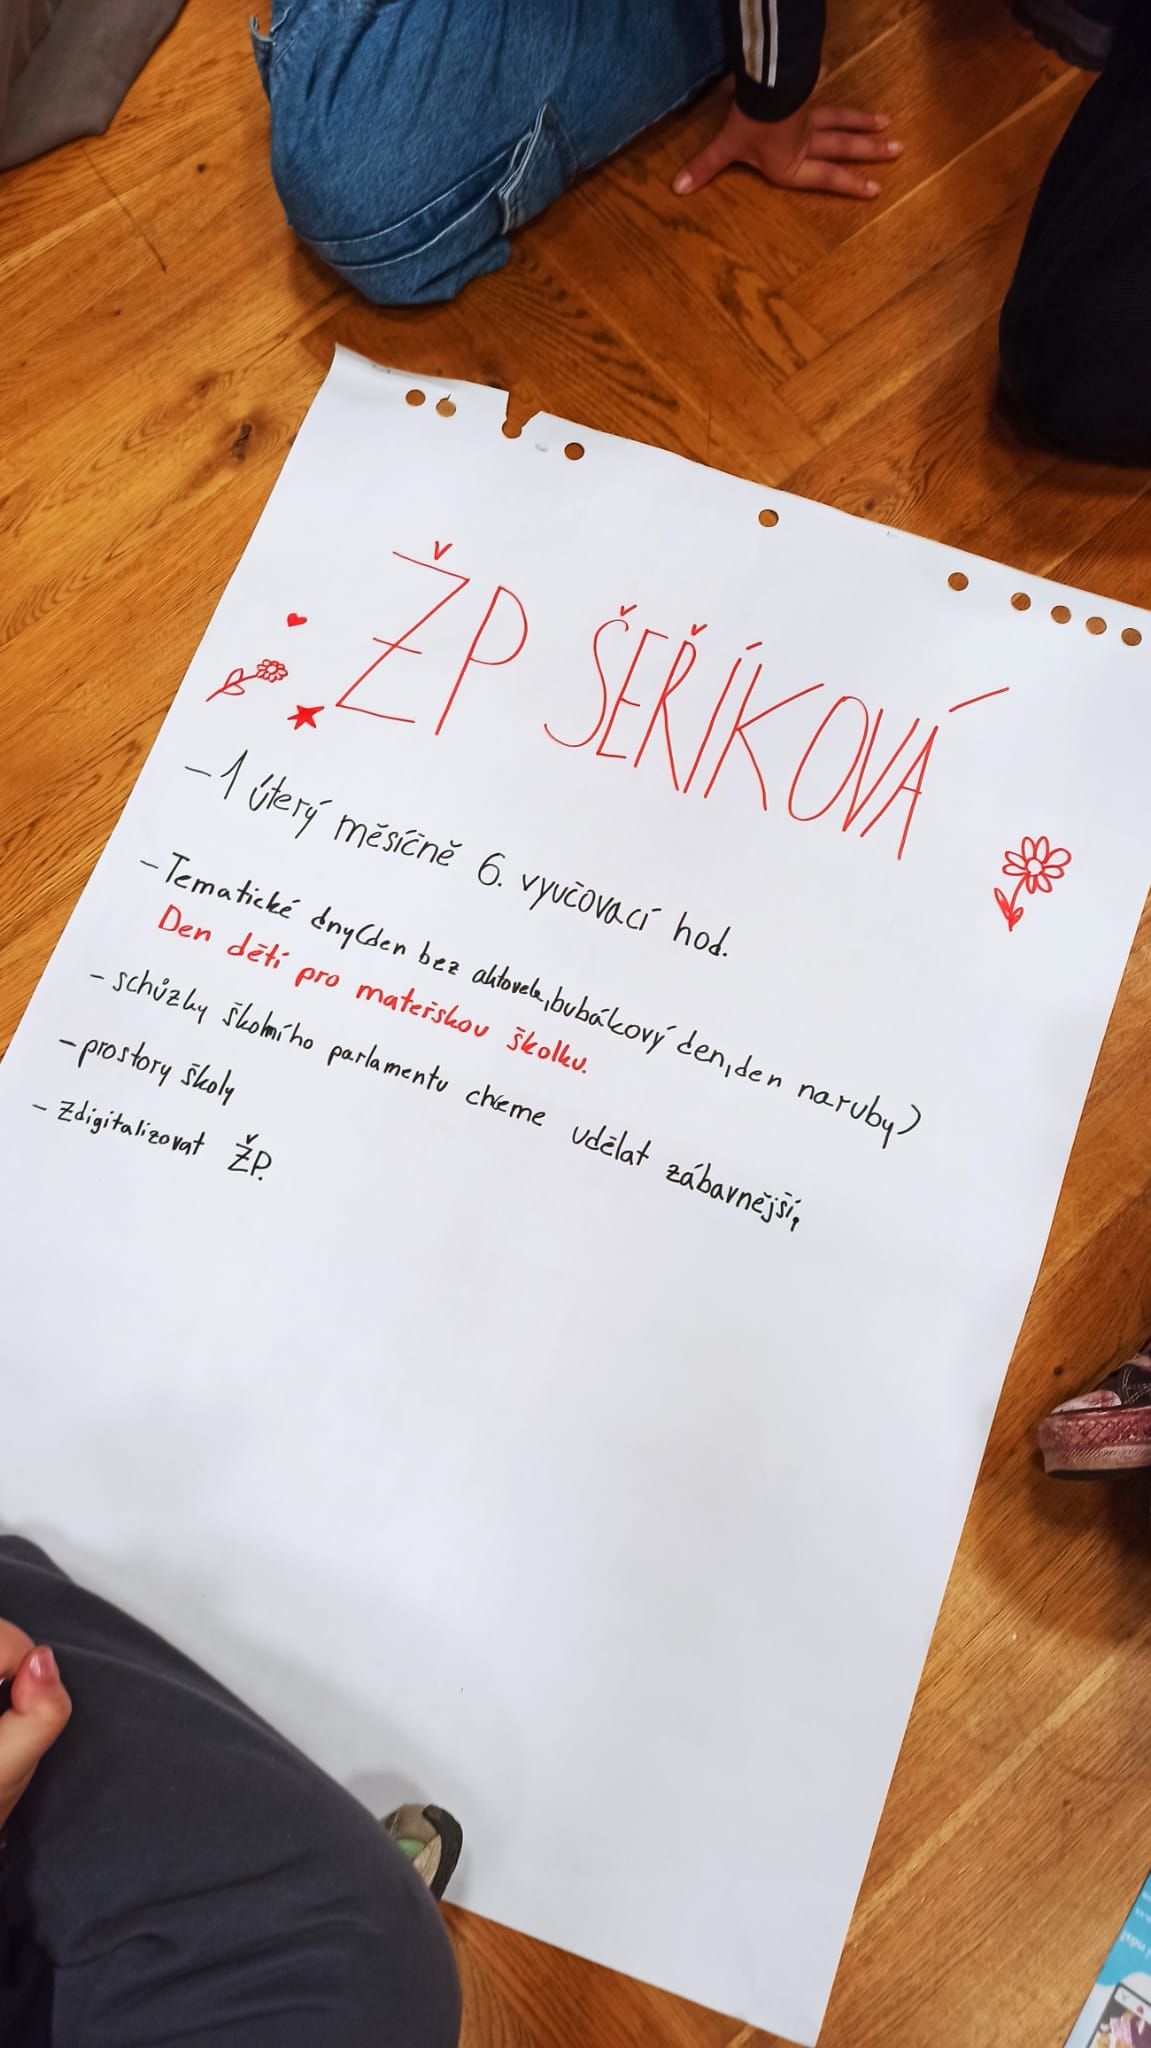 ŽP ŠEŘÍKOVÁ
- 1 úterý měsíčně 6. vyučovací hod.
- Tematické dny(den bez aktovek, bubákový den, den naruby)
Den dětí pro mateřskou školku.
- schůzky školního parlamentu chceme udělat zábavnější,
- prostory školy
- Zdigitalizovat ŽP.